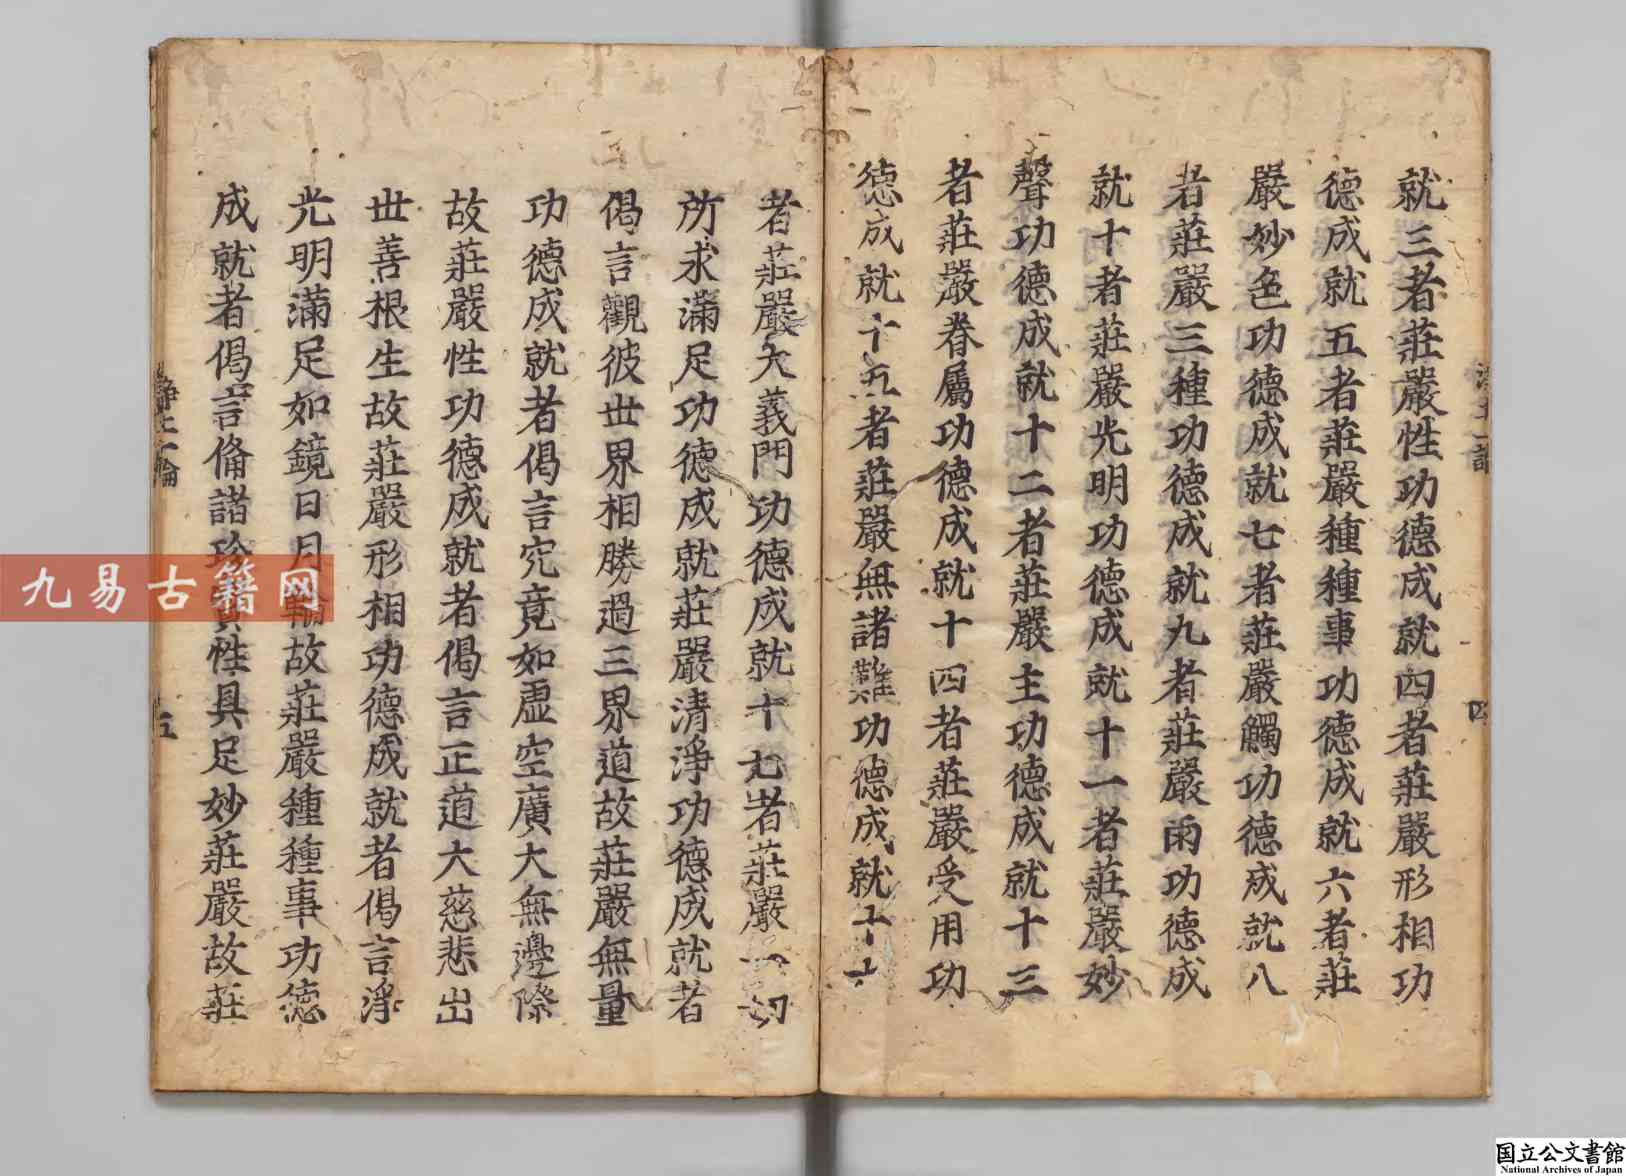 就三者莊嚴性功德成就四者莊嚴形相功
德成就五者莊嚴種種事功德成就六者莊
嚴妙色功德成就七者莊嚴觸功德成就八
者莊嚴三種功德成就九者莊嚴雨功德成
就十者莊嚴光明功德成就十一者莊嚴妙
聲功德成就十二者莊嚴主功德成就十三
者莊嚴眷屬功德成就十四者莊嚴受用功
德成就十五者莊嚴無諸難功德成就十六
者莊嚴大義門功德成就十七者莊嚴一切
所求滿足功德成就莊嚴清淨功德成就者
偈言觀彼世界相勝過三界道故莊嚴無量
功德成就者偈言究竟如虛空廣大無邊際
故莊嚴性功德成就者偈言正道大慈悲出
世善根生故莊嚴形相功德成就者偈言淨
光明滿足如鏡日月輪故莊嚴種種事功德
成就者偈言俻諸珍寶性具足妙莊嚴故莊
四
淨土論
五
九易古籍网
国立公文書館
National Archives of Japan